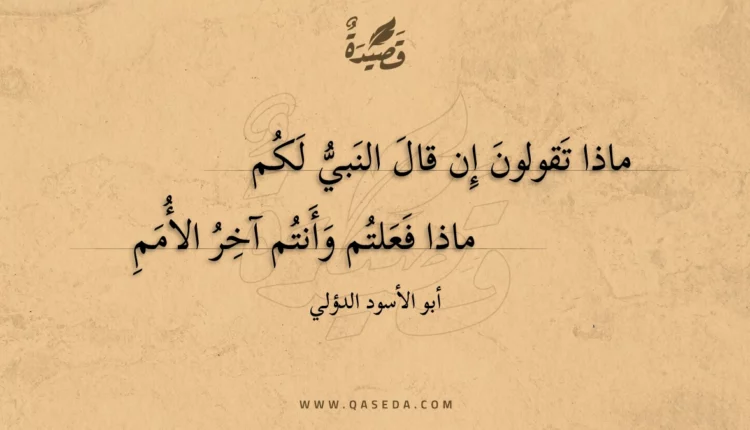 قَصِيدَةٌ
ماذا تَقولونَ إِن قالَ النَبيُّ لَكُم
ماذا فَعَلتُم وَأَنتُم آخِرُ الأُمَمِ
أبو الأسود الدؤلي
WWW.QASEDA.COM